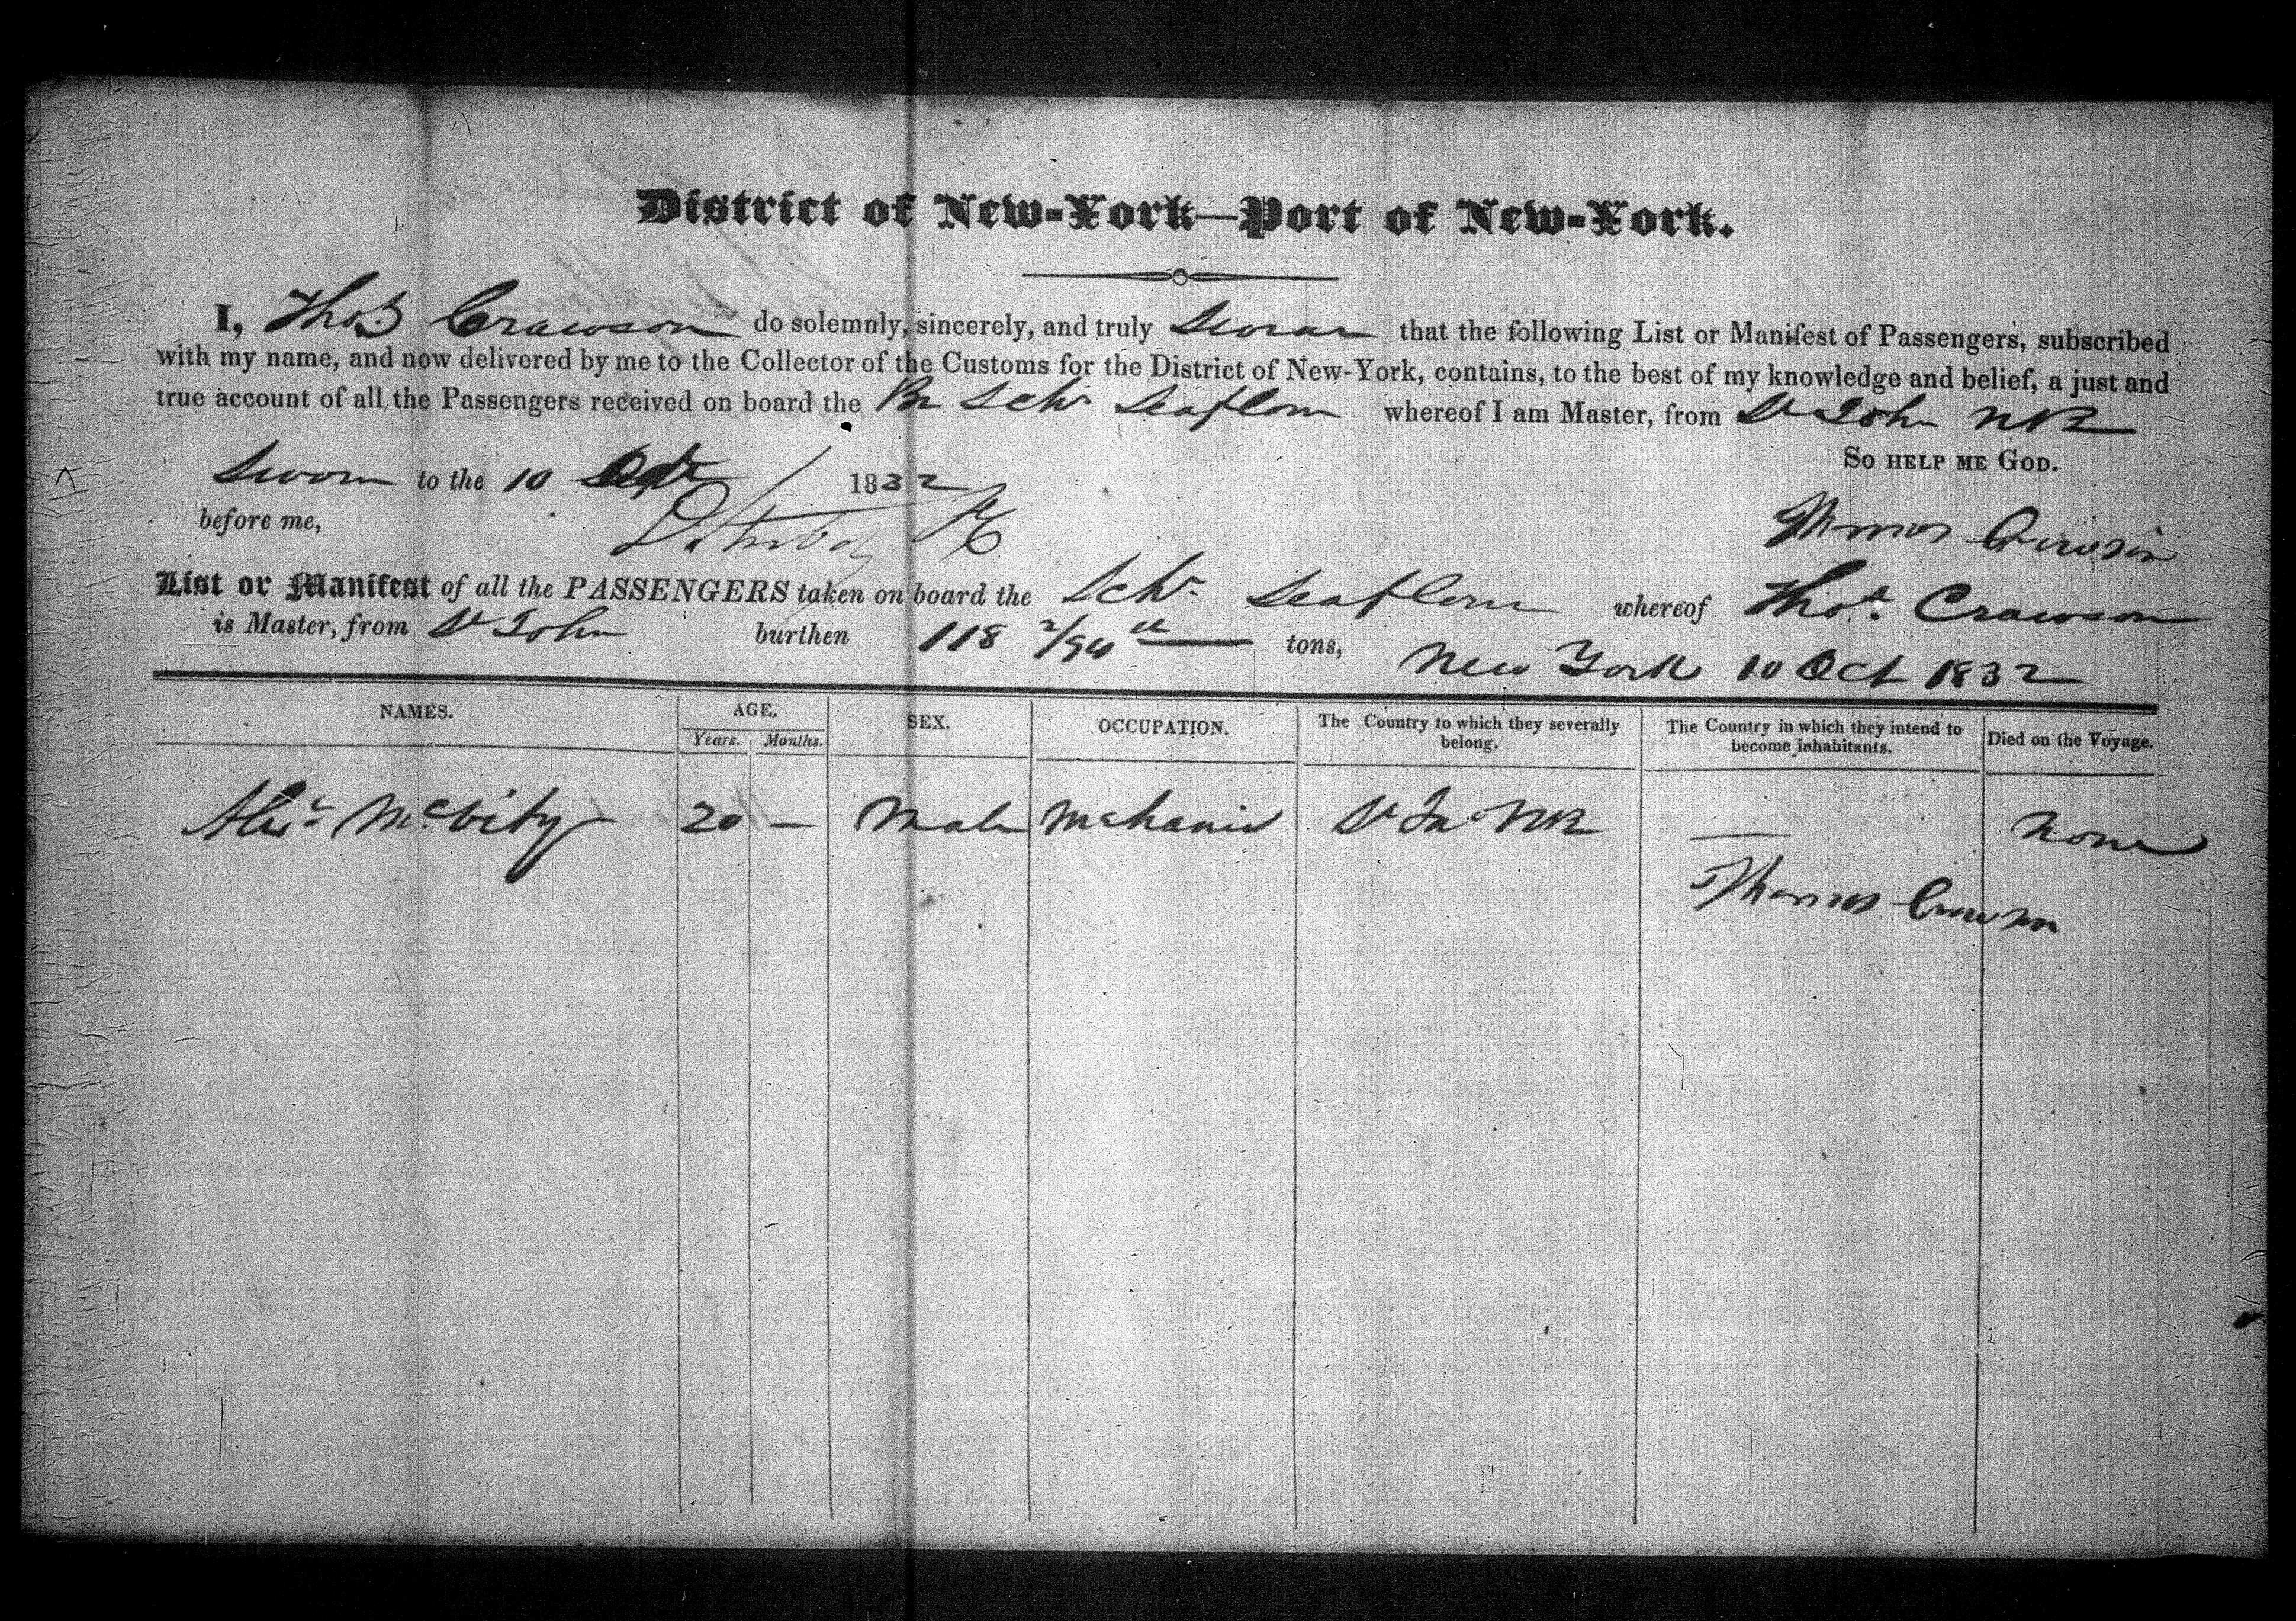 District of New-York—Port of New-York.
I, Thos Crawson do solemnly, sincerely, and truly swear that the following List or Manifest of Passengers, subscribed
with my name, and now delivered by me to the Collector of the Customs for the District of New-York, contains, to the best of my knowledge and belief, a just and
true account of all the Passengers received on board the Br Schr Seaflower whereof I am Master, from St John NB
So help me God.
Sworn to the 10 1832
before me,
Thomas Crawson
List or Manifest of all the PASSENGERS taken on board the Schr Seaflower whereof Thos. Crawson
is Master, from St John burthen 118 tons,
New York 10 Oct 1832
NAMES. AGE. SEX. OCCUPATION. The Country to which they severally belong. The Country in which they intend to become inhabitants. Died on the Voyage.
Years. Months.
20 — Male Mechanic St Jno NB — None
Thomas Crawson